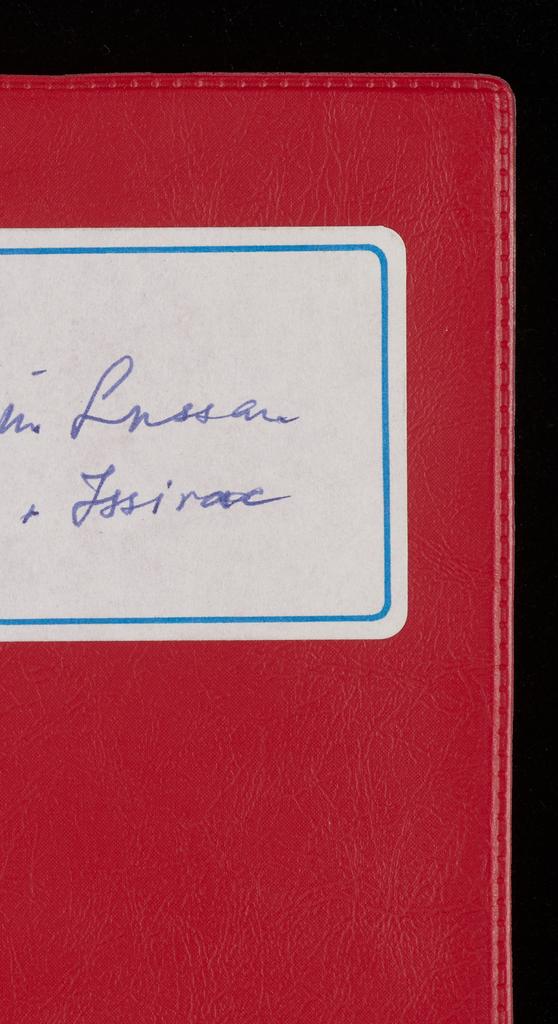 Lussan
+ Issirac